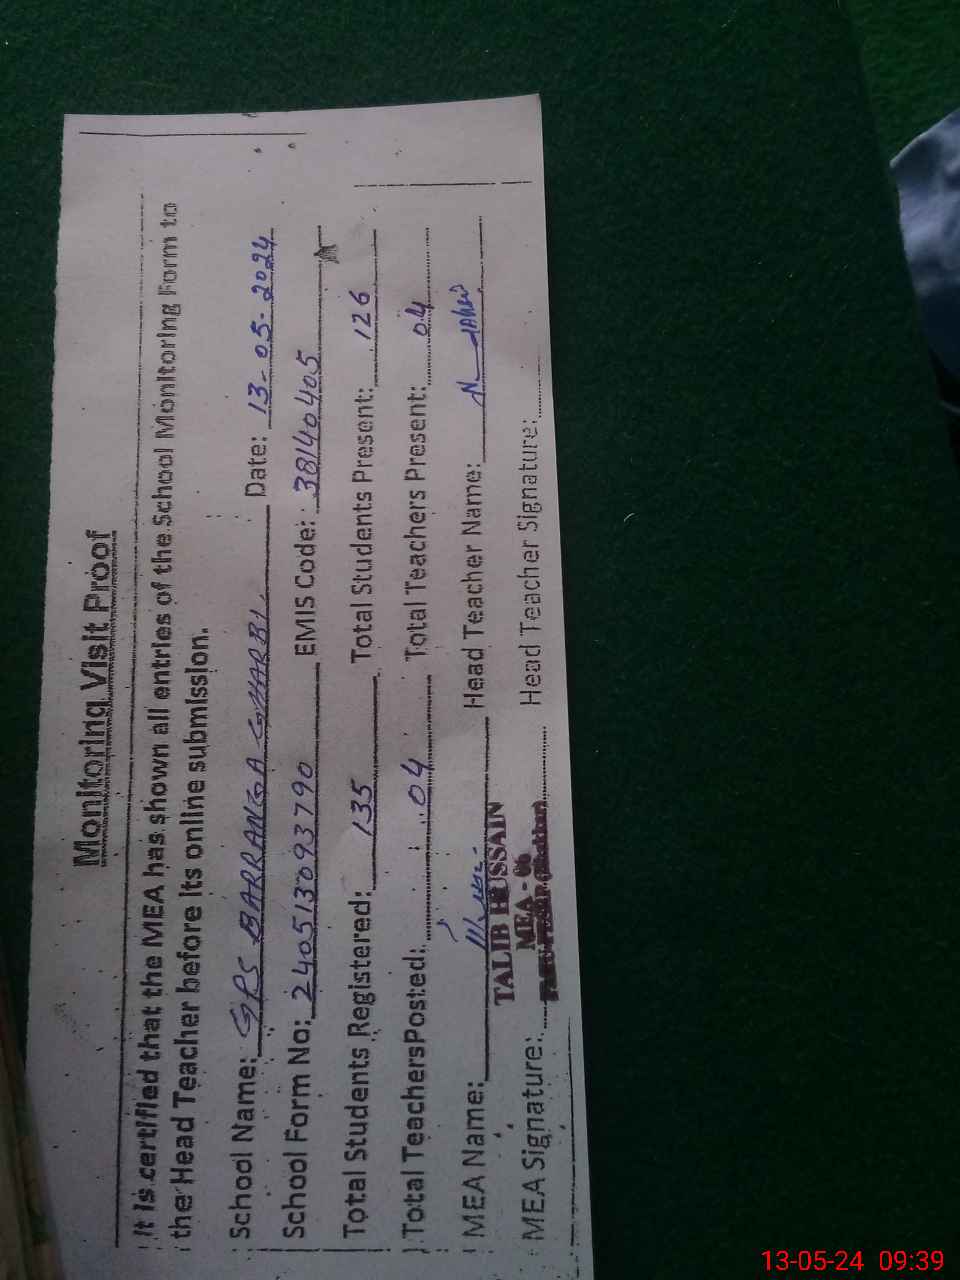 Monitoring Visit Proof
It is certified that the MEA has shown all entries of the School Monitoring Form to
the Head Teacher before its online submission.
School Name: GPS BARRANGA GHARBI. Date: 13-05-2024
School Form No: 240513093790 EMIS Code: 38140405
Total Students Registered: 135 Total Students Present: 126
Total TeachersPosted: 04 Total Teachers Present: 04
MEA Name: Head Teacher Name:
TALIB HUSSAIN
MEA - 06
MEA Signature: Head Teacher Signature:
13-05-24 09:39